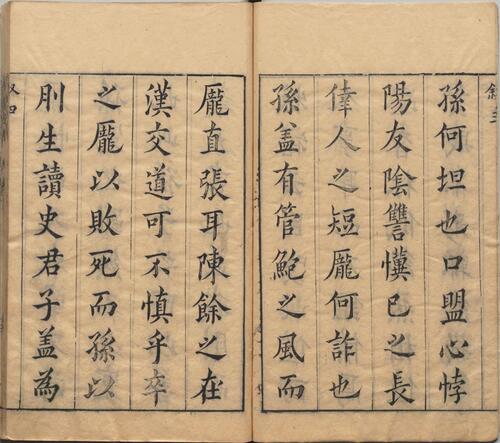 孫何坦也口盟心悖
陽友陰讐懻已之長
偉人之短龎何詐也
孫盖有管鮑之風而
龎直張耳陳餘之在
漢交道可不慎乎卒
之龎以敗死而孫以
刖生讀史君子盖為